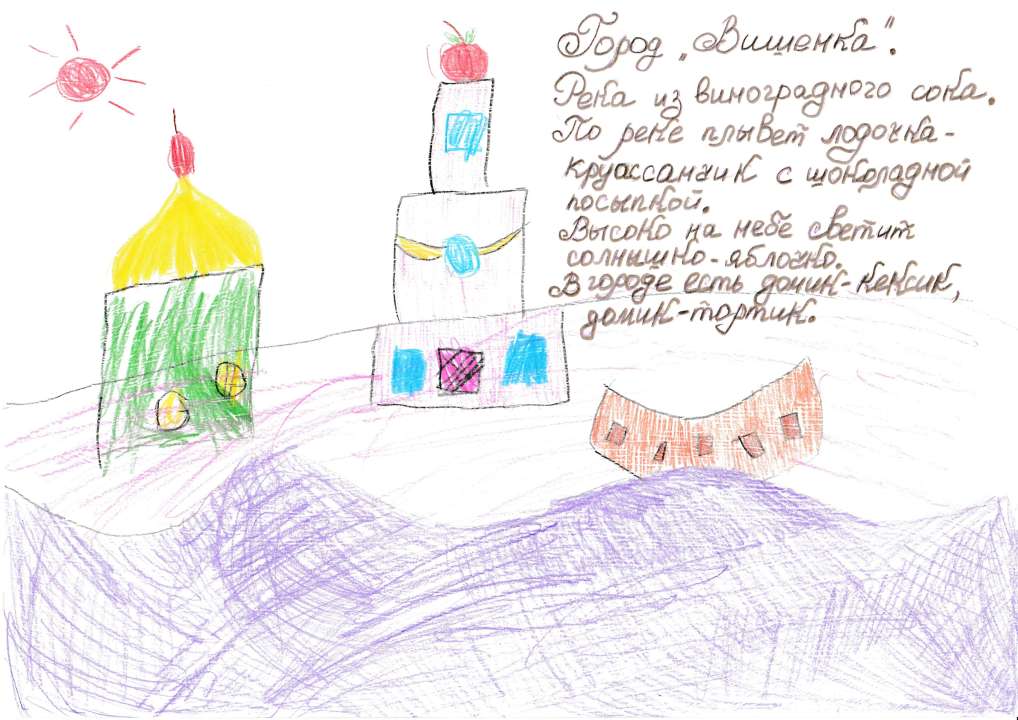 Город „Вишенка".
Река из виноградного сока.
По реке плывет лодочка-
круассанчик с шоколадной
посыпкой.
Высоко на небе светит
солнышко-яблочко.
В городе есть домик-кексик,
домик-тортик.